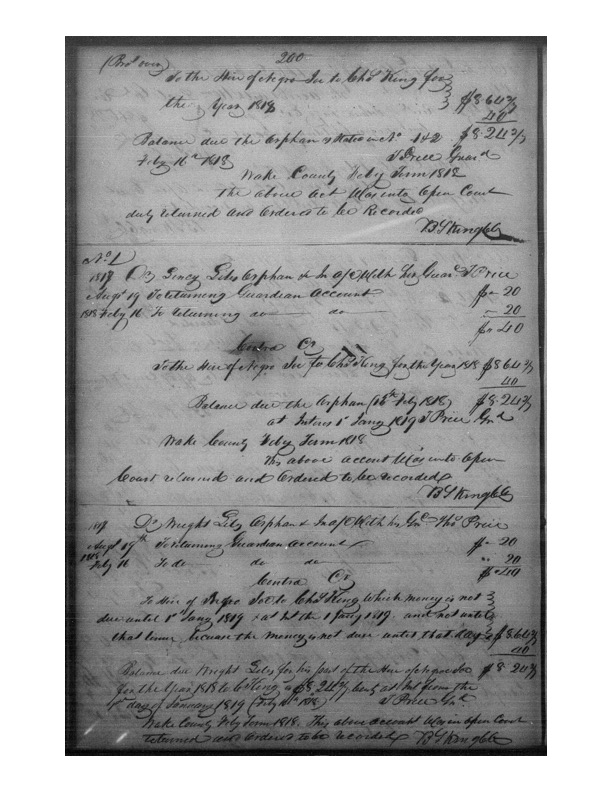 (Brot over) 200
To the Hire of Negro Joe to Chas King for
the Year 1818 $8.64 2/3
40
Balance due the Orphan & Stated in No 1 & 2 $8.24 2/3
Feby 16th 1818 T Price Guard
Wake County Feby Term 1818
The above Act Was into Open Court
duly returned and Ordered to be Recorded
B S King Clk
No 1
1817 Dr Gincy Giles Orphan & In a/c With her Guard T Price
Augt 19 To returning Guardian Account $" 20
1818 Feby 16 To returning do do " 20
$" 40
Contra Cr
To the Hire of Negro Joe to Chas King for the Year 1818 $8.64 2/3
40
Balance due the Orphan (16th Feby 1818) $8.24 2/3
at Interest 1st Jany 1819 T Price Gnd
Wake County Feby Term 1818
This above account Was into Open
Court returned and Ordered to be recorded
B S King Clk
1817 Dr Wright Giles Orphan & In a/c With his Gn Thos Price
Augt 19th To returning Guardian Account $" 20
1818 Feby 16 To do do do " 20
$" 40
Contra Cr
To Hire of Negro Joe to Chas King Which money is not
due until 1st Jany 1819 & at Int the 1 Jany 1819 and not until
that time because the money is not due until that day $8.64 2/3
40
Balance due Wright Giles for his part of the Hire of Negro Joe $8.24 2/3
for the Year 1818 to C King $8.24 2/3 being at Int from the
1st day of January 1819 (Feby 16th 1818) T Price Gnd
Wake County Feby Term 1818. This above account Was in Open Court
returned and Ordered to be recorded B S King Clk